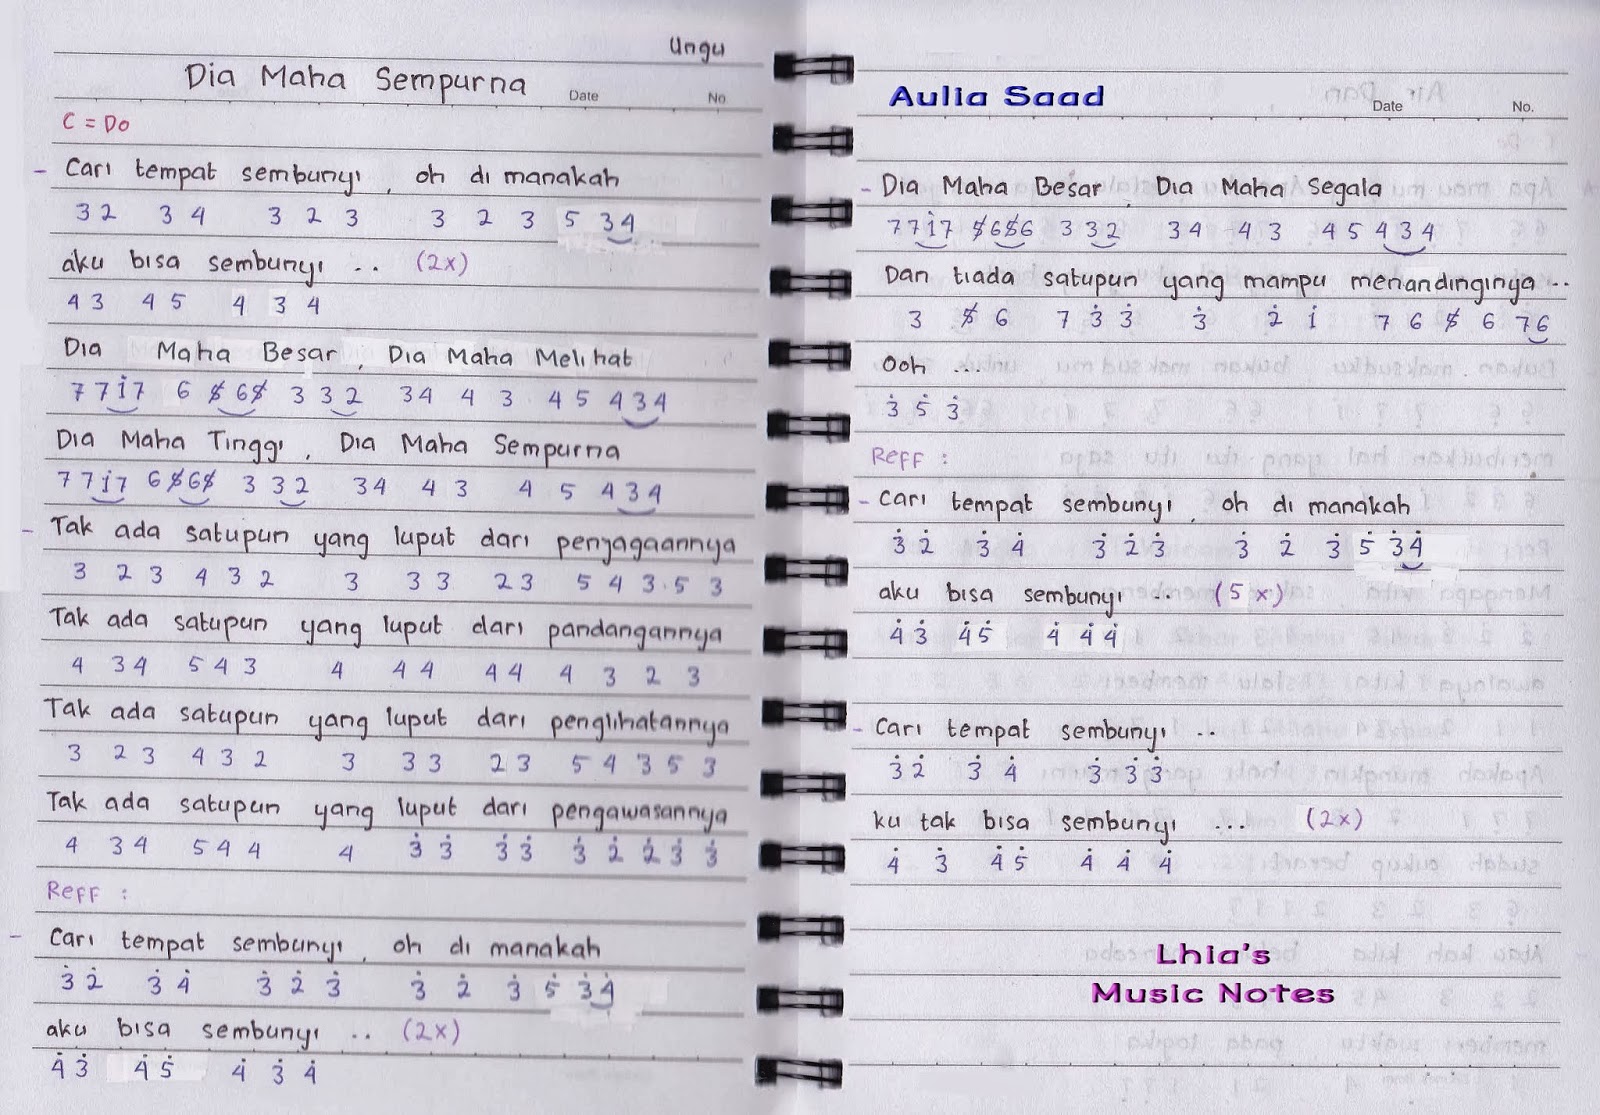 Ungu
Dia Maha Sempurna
Date No
C = Do
- Cari tempat sembunyi, oh di manakah
3 2 3 4 3 2 3 3 2 3 5 3 4
aku bisa sembunyi .. (2x)
4 3 4 5 4 3 4
Dia Maha Besar, Dia Maha Melihat
7 7 1̇ 7 6 5̸ 6 5̸ 3 3 2 3 4 4 3 4 5 4 3 4
Dia Maha Tinggi, Dia Maha Sempurna
7 7 1̇ 7 6 5̸ 6 5̸ 3 3 2 3 4 4 3 4 5 4 3 4
- Tak ada satupun yang luput dari penjagaannya
3 2 3 4 3 2 3 3 3 2 3 5 4 3 . 5 3
Tak ada satupun yang luput dari pandangannya
4 3 4 5 4 3 4 4 4 4 4 4 3 2 3
Tak ada satupun yang luput dari penglihatannya
3 2 3 4 3 2 3 3 3 2 3 5 4 3 5 3
Tak ada satupun yang luput dari pengawasannya
4 3 4 5 4 4 4 3̇ 3̇ 3̇ 3̇ 3̇ 2̇ 2̇ 3̇ 3̇
Reff :
- Cari tempat sembunyi, oh di manakah
3̇ 2̇ 3̇ 4̇ 3̇ 2̇ 3̇ 3̇ 2̇ 3̇ 5̇ 3̇ 4̇
aku bisa sembunyi .. (2x)
4̇ 3̇ 4̇ 5̇ 4̇ 3̇ 4̇
Aulia Saad
Date No.
- Dia Maha Besar, Dia Maha Segala
7 7 1̇ 7 5̸ 6 5̸ 6 3 3 2 3 4 4 3 4 5 4 3 4
Dan tiada satupun yang mampu menandinginya ..
3 5̸ 6 7 3̇ 3̇ 3̇ 2̇ 1̇ 7 6 5̸ 6 7 6
Ooh ...
3̇ 5̇ 3̇
Reff :
- Cari tempat sembunyi, oh di manakah
3̇ 2̇ 3̇ 4̇ 3̇ 2̇ 3̇ 3̇ 2̇ 3̇ 5̇ 3̇ 4̇
aku bisa sembunyi .. (5x)
4̇ 3̇ 4̇ 5̇ 4̇ 4̇ 4̇
- Cari tempat sembunyi ..
3̇ 2̇ 3̇ 4̇ 3̇ 3̇ 3̇
ku tak bisa sembunyi ... (2x)
4̇ 3̇ 4̇ 5̇ 4̇ 4̇ 4̇
Lhia's
Music Notes